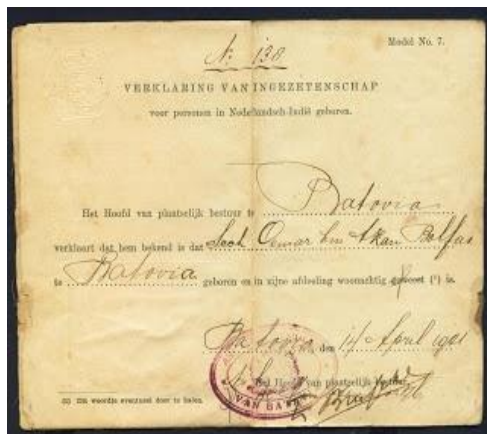 Model No. 7.
N: 138
VERKLARING VAN INGEZETENSCHAP
voor personen in Nederlandsch-Indië geboren.
Het Hoofd van plaatselijk bestuur te Batavia
verklaart dat hem bekend is dat Sech Oemar bin Balfas
te Batavia geboren en in zijne afdeeling woonachtig geweest (¹) is.
Batavia, den 14 April 1901
Het Hoofd van plaatselijk bestuur
VAN BATA
(1) Dit woordje eventueel door te halen.